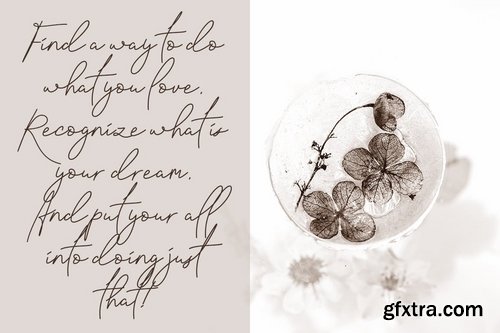 Find a way to do
what you love.
Recognize what is
your dream.
And put your all
into doing just
that!
gfxtra.com